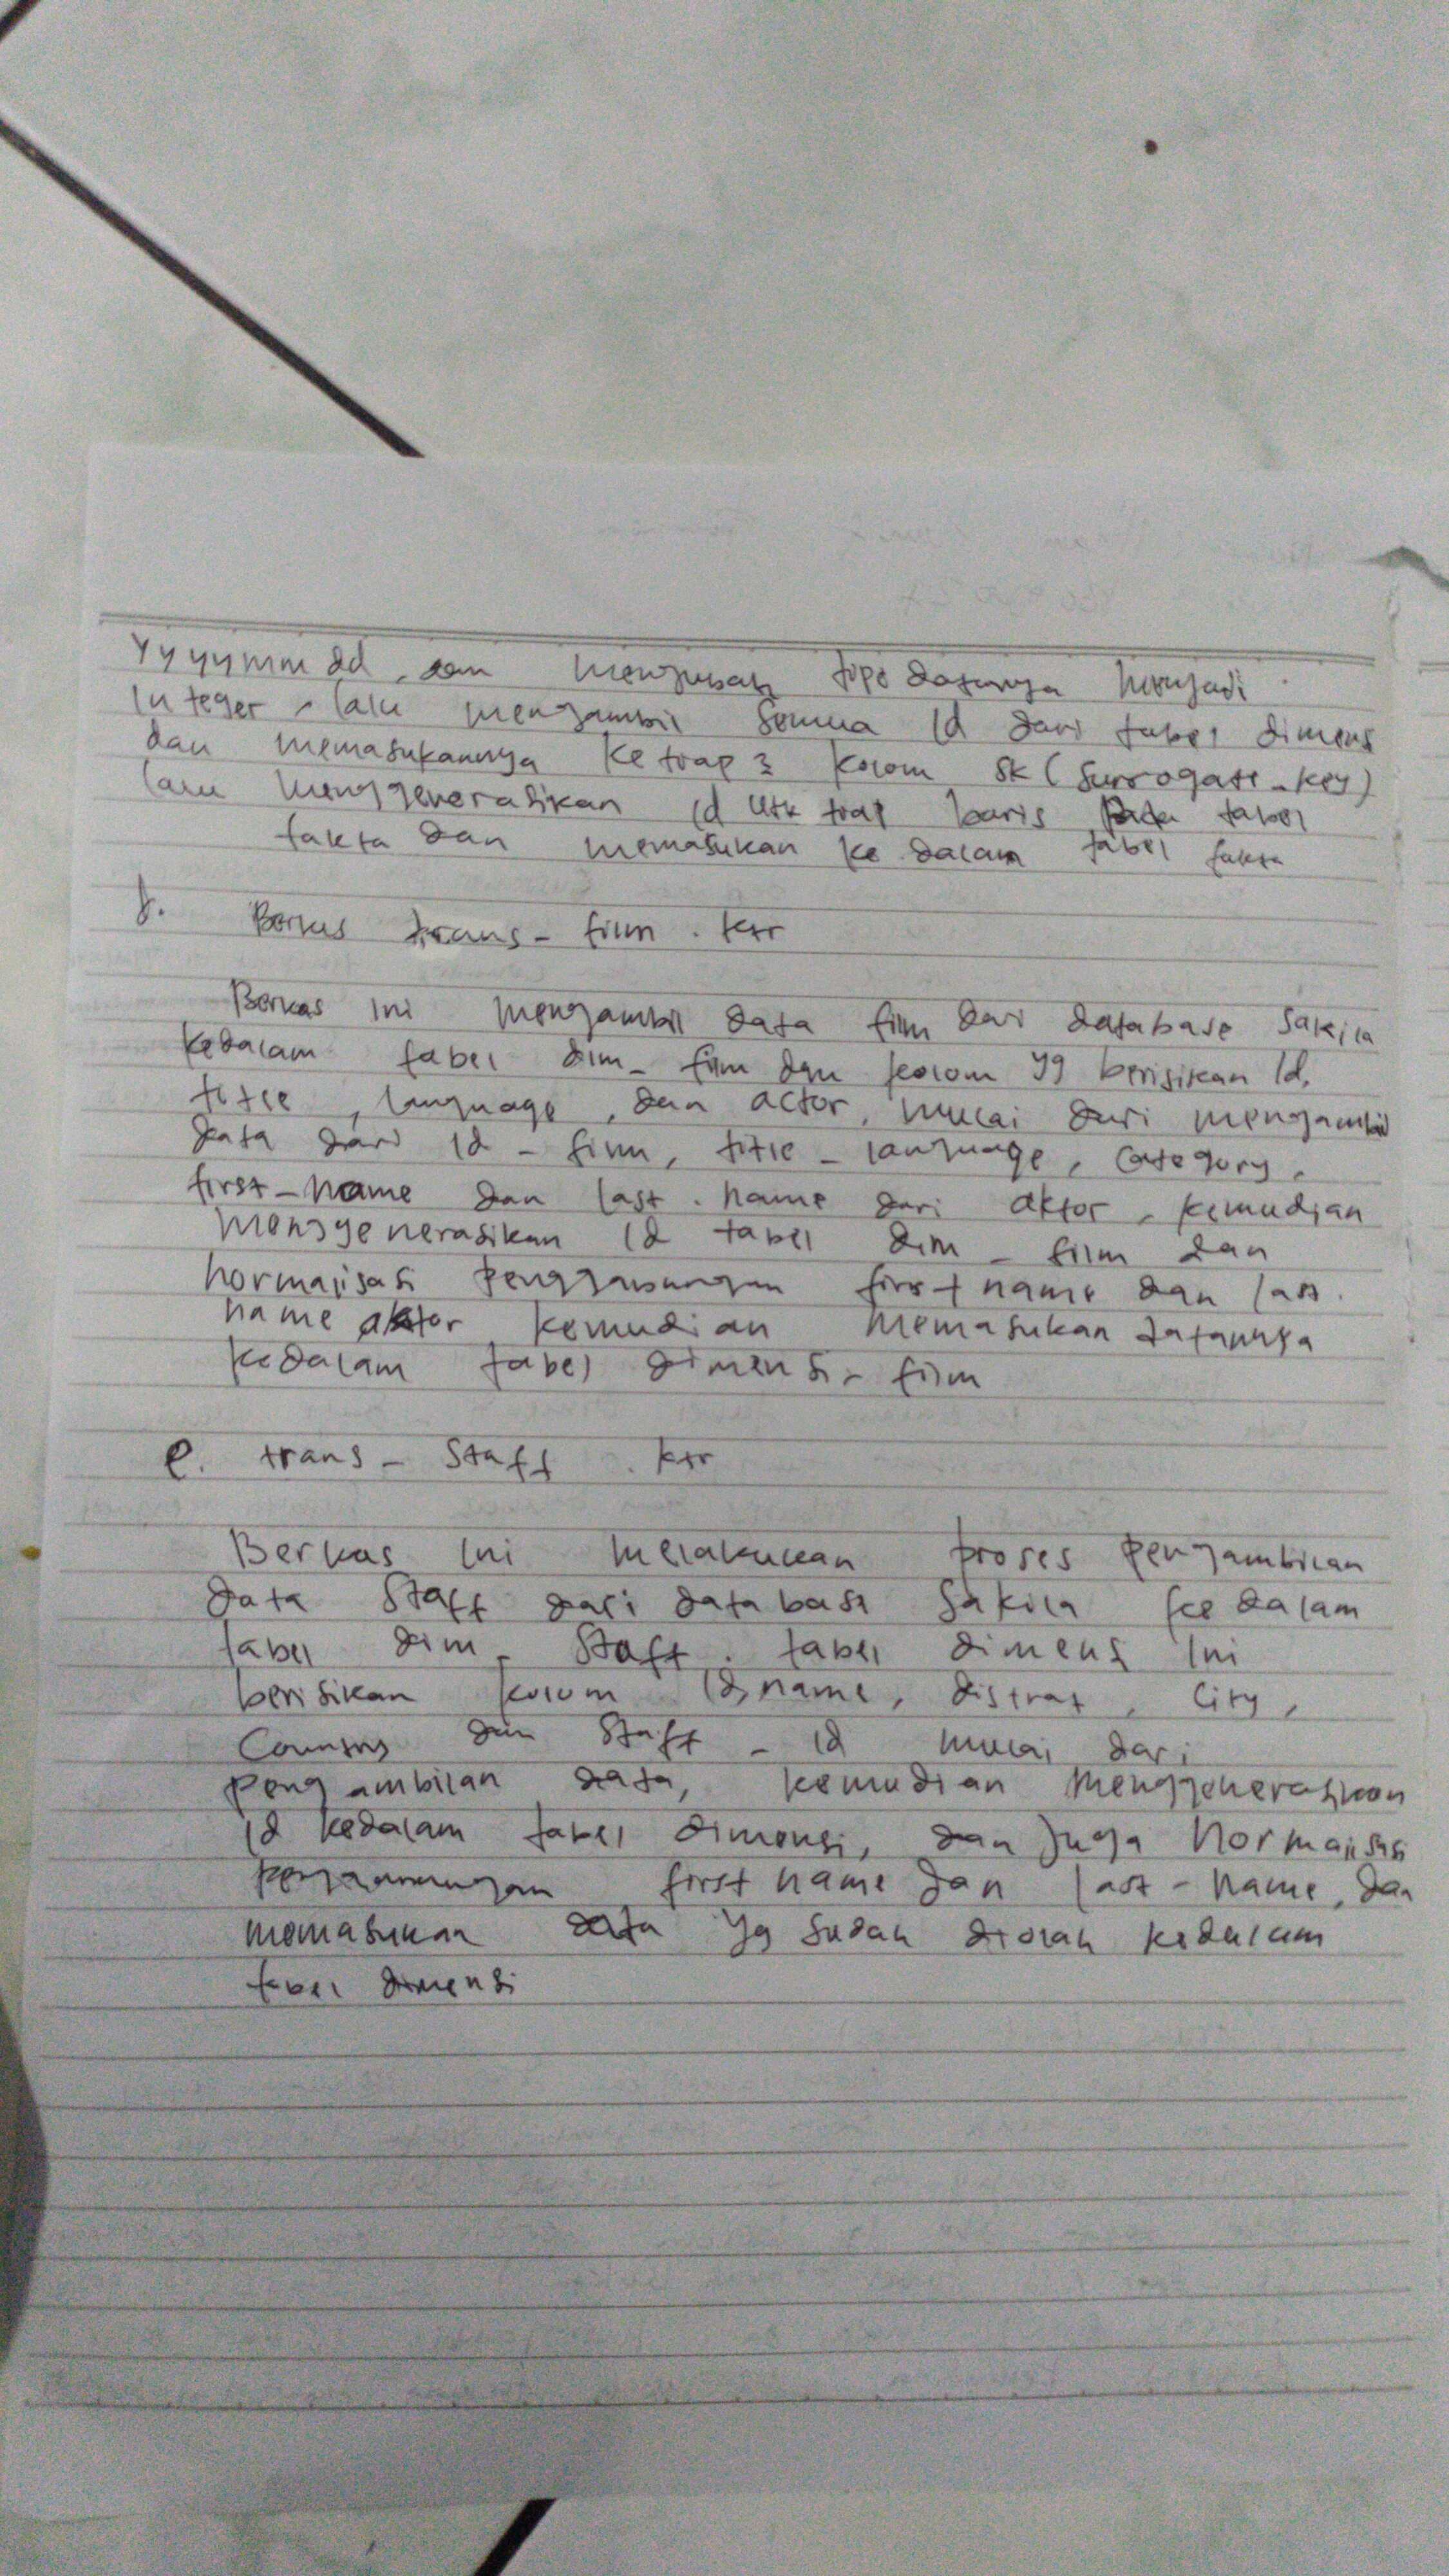 Yyyymmdd, dan mengubah tipe datanya menjadi
Integer, lalu mengambil semua id dari tabel dimens
dan memasukannya ke tiap2 kolom sk (surrogate-key)
lalu menggenerasikan id utk tiap baris pada tabel
fakta dan memasukan ke dalam tabel fakta
d. Berkas trans-film.ktr
Berkas ini mengambil data film dari database sakila
kedalam tabel dim_film dan kolom yg berisikan id,
title, language, dan actor, mulai dari mengambil
data dari id-film, title-language, category,
first-name dan last.name dari aktor, kemudian
menggenerasikan id tabel dim_film dan
normalisasi penggabungan first name dan last.
name aktor kemudian memasukan datannya
kedalam tabel dimensi-film
e. trans-staff.ktr
Berkas ini melakukan proses pengambilan
data staff dari database sakila kedalam
tabel dim_staff. tabel dimensi ini
berisikan kolom id, name, distrat, city,
Country dan staff-id mulai dari
pengambilan data, kemudian menggenerasikan
id kedalam tabel dimensi, dan juga normalisasi
penggabungan first name dan last-name, dan
memasukan data yg sudah diolah kedalam
tabel dimensi